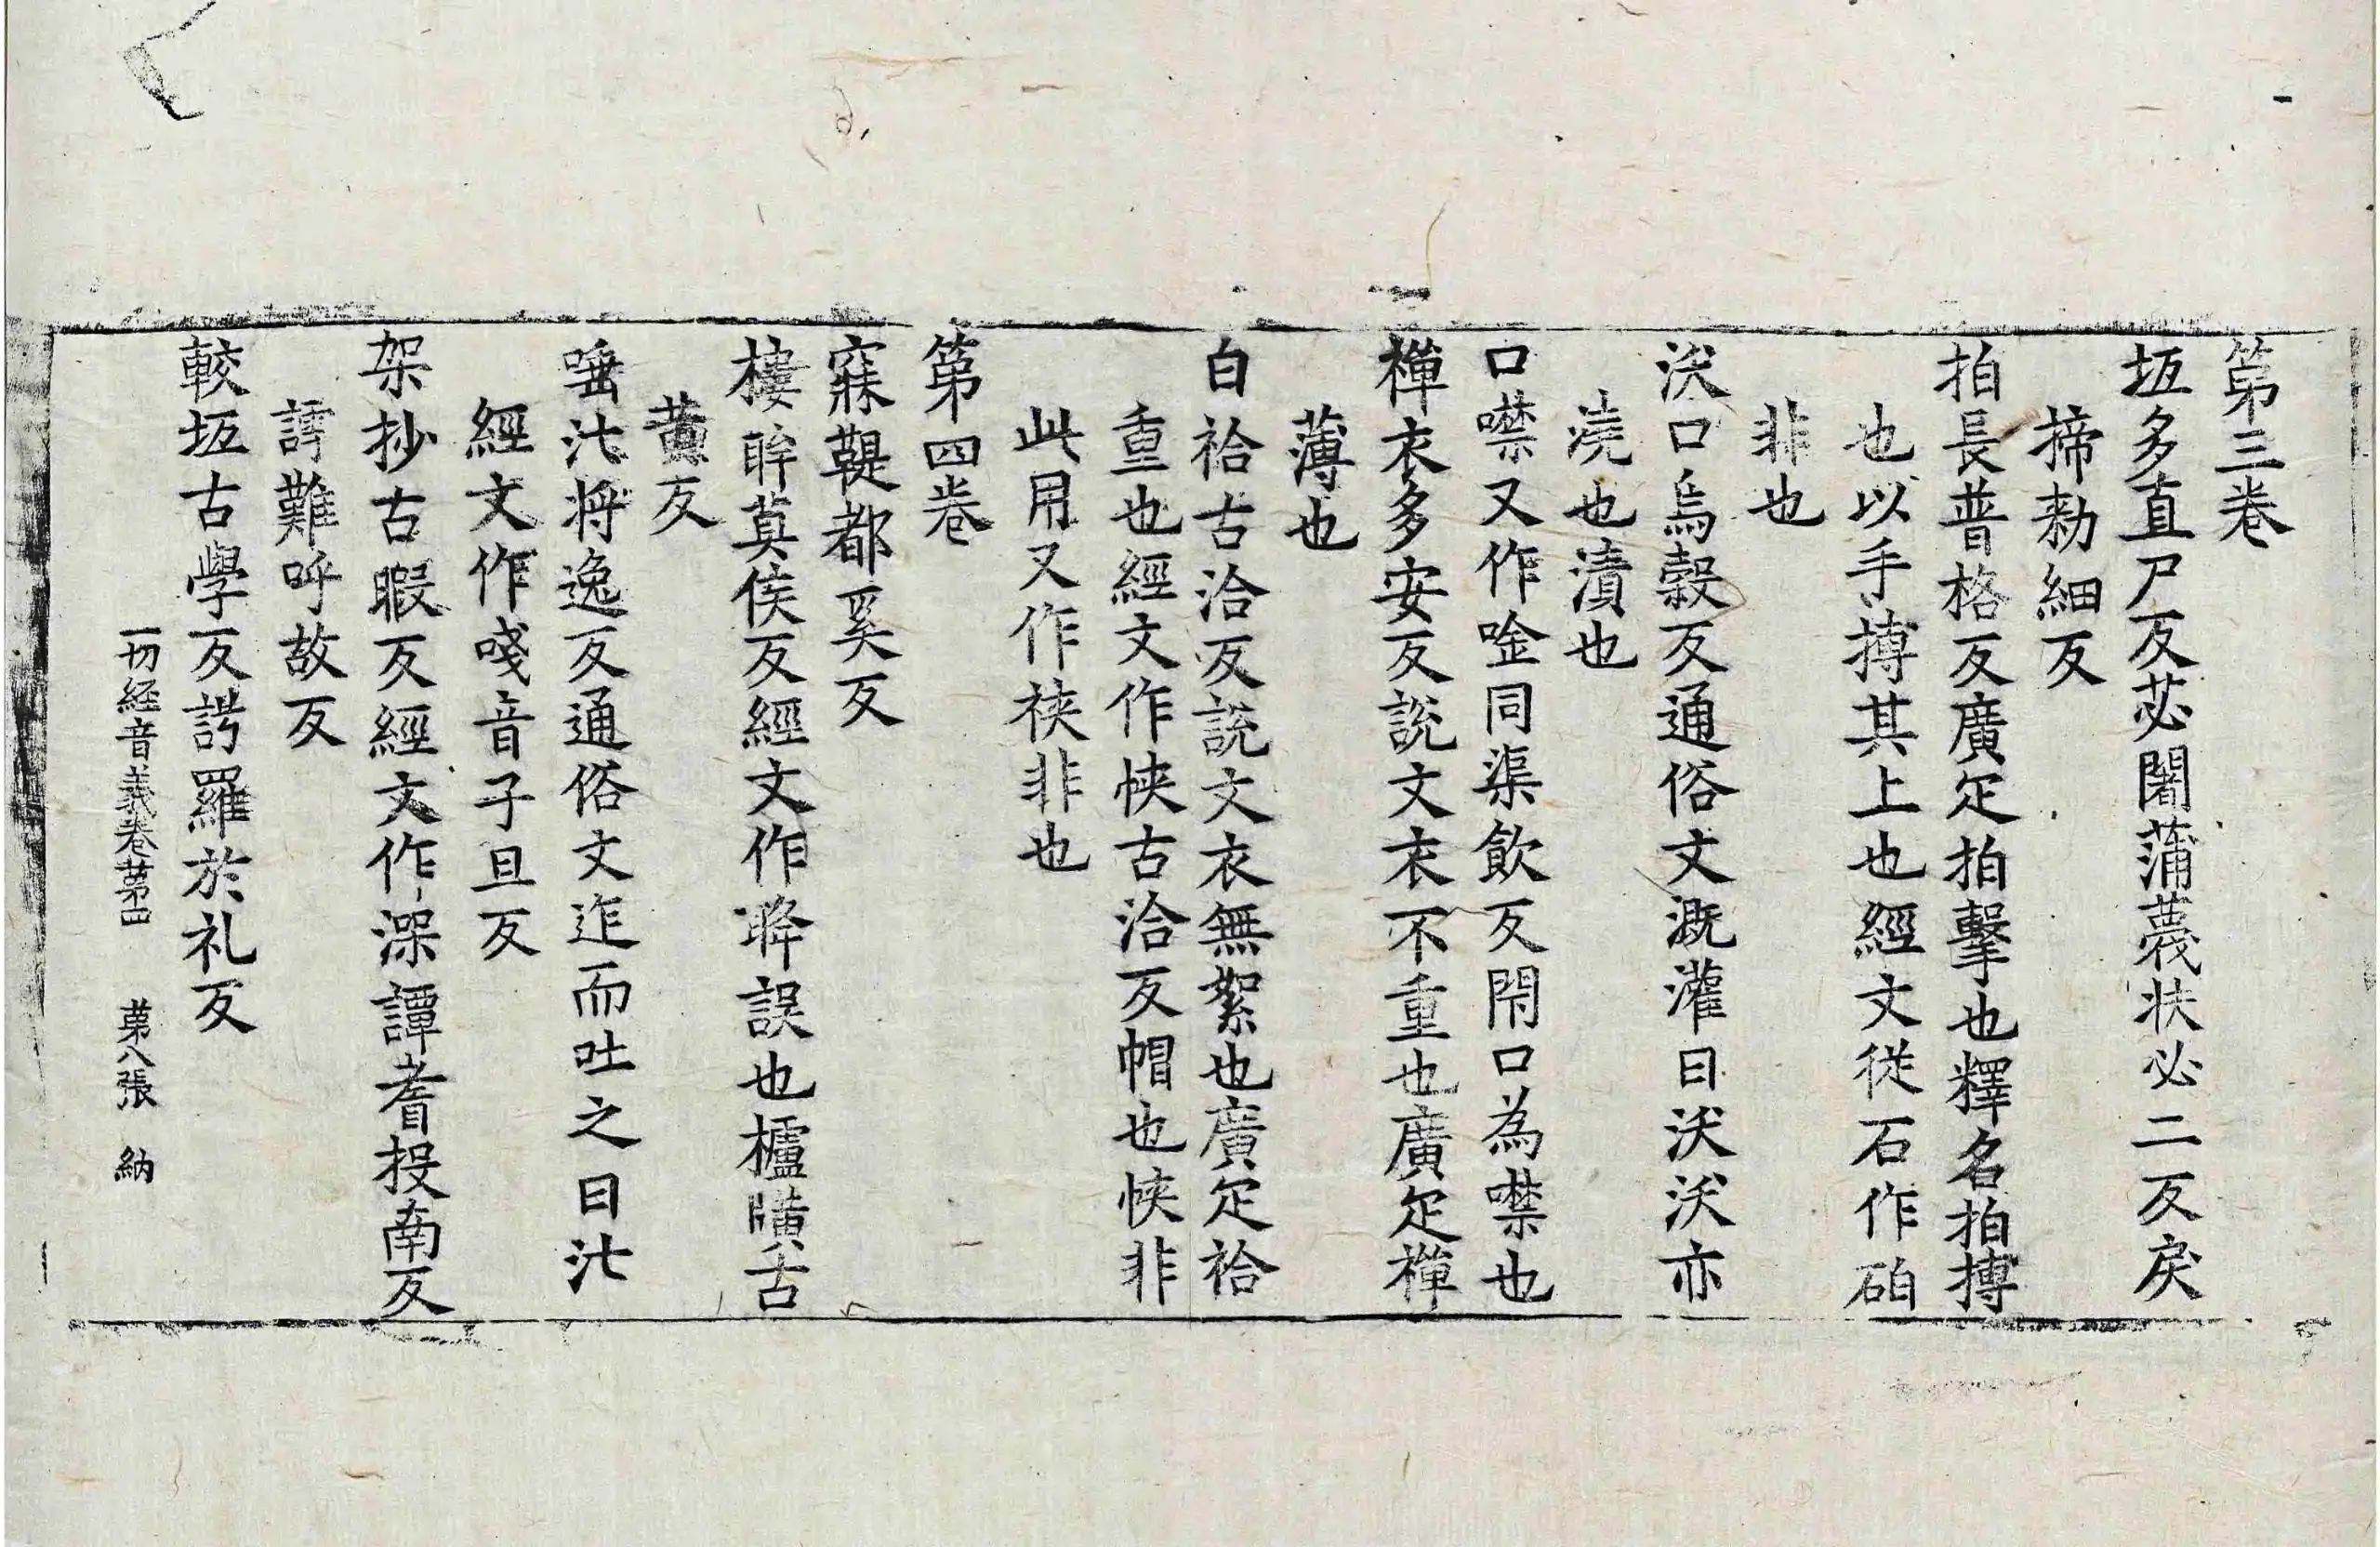 第三卷
坁多直尸反苾闍蒲蔑扶必二反戾
揥勑細反
拍長普格反廣疋拍擊也釋名拍搏
也以手搏其上也經文從石作砶
非也
沃口烏縠反通俗文溉灌曰沃沃亦
澆也漬也
口噤又作唫同渠飲反閇口為噤也
襌衣多安反說文衣不重也廣疋襌
薄也
白袷古洽反說文衣無絮也廣疋袷
重也經文作㤲古洽反帽也㤲非
此用又作裌非也
第四卷
寐鞮都奚反
樓眸莫侯反經文作眸誤也櫨㬻古
黃反
唾沘將逸反通俗文迮而吐之曰沘
經文作㗔音子旦反
架抄古暇反經文作深譚耆投南反
謣難呼故反
較坁古學反謣羅於礼反
一切經音義卷第四 第八張 納